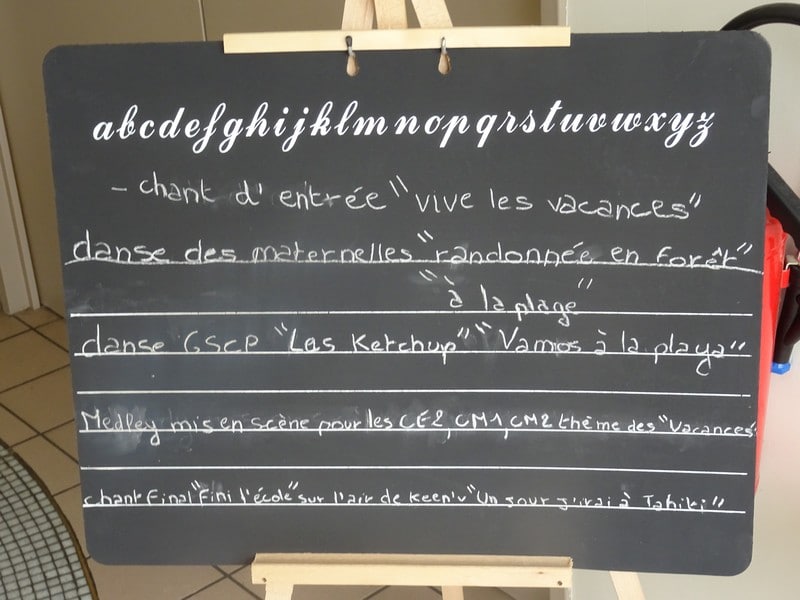 abcdefghijklmnopqrstuvwxyz
- chant d'entrée "vive les vacances"
danse des maternelles "randonnée en forêt"
"à la plage"
danse GSCP "Las Ketchup" "Vamos à la playa"
Medley mis en scène pour les CE2, CM1, CM2 thème des "Vacances"
chant Final "Fini l'école" sur l'air de Keen'v "Un jour j'irai à Tahiti"